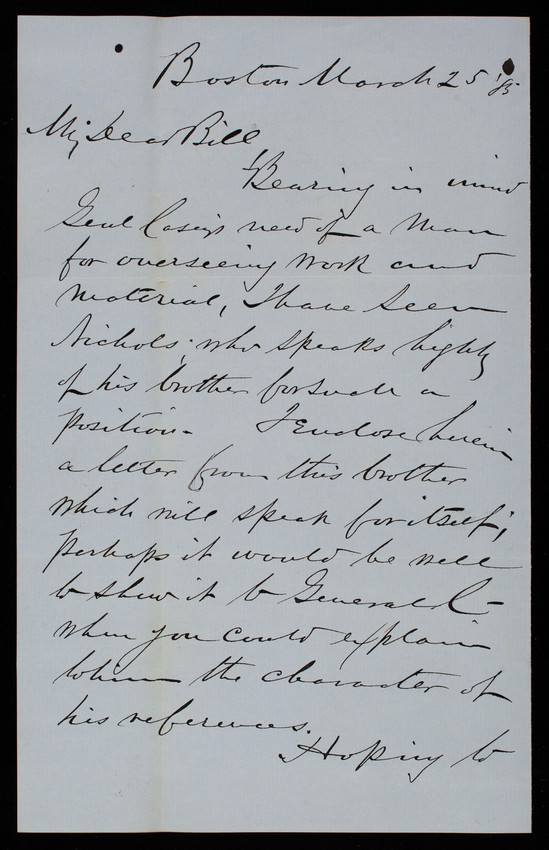 Boston March 25 '85
My Dear Bill
Bearing in mind
Genl Casey's need of a man
for overseeing work and
material, I have seen
Nichols; who speaks highly
of his brother for such a
position. I Enclose herein
a letter from this brother
which will speak for itself;
perhaps it would be well
to show it to General C-
when you could explain
to him the character of
his references.
Hoping to